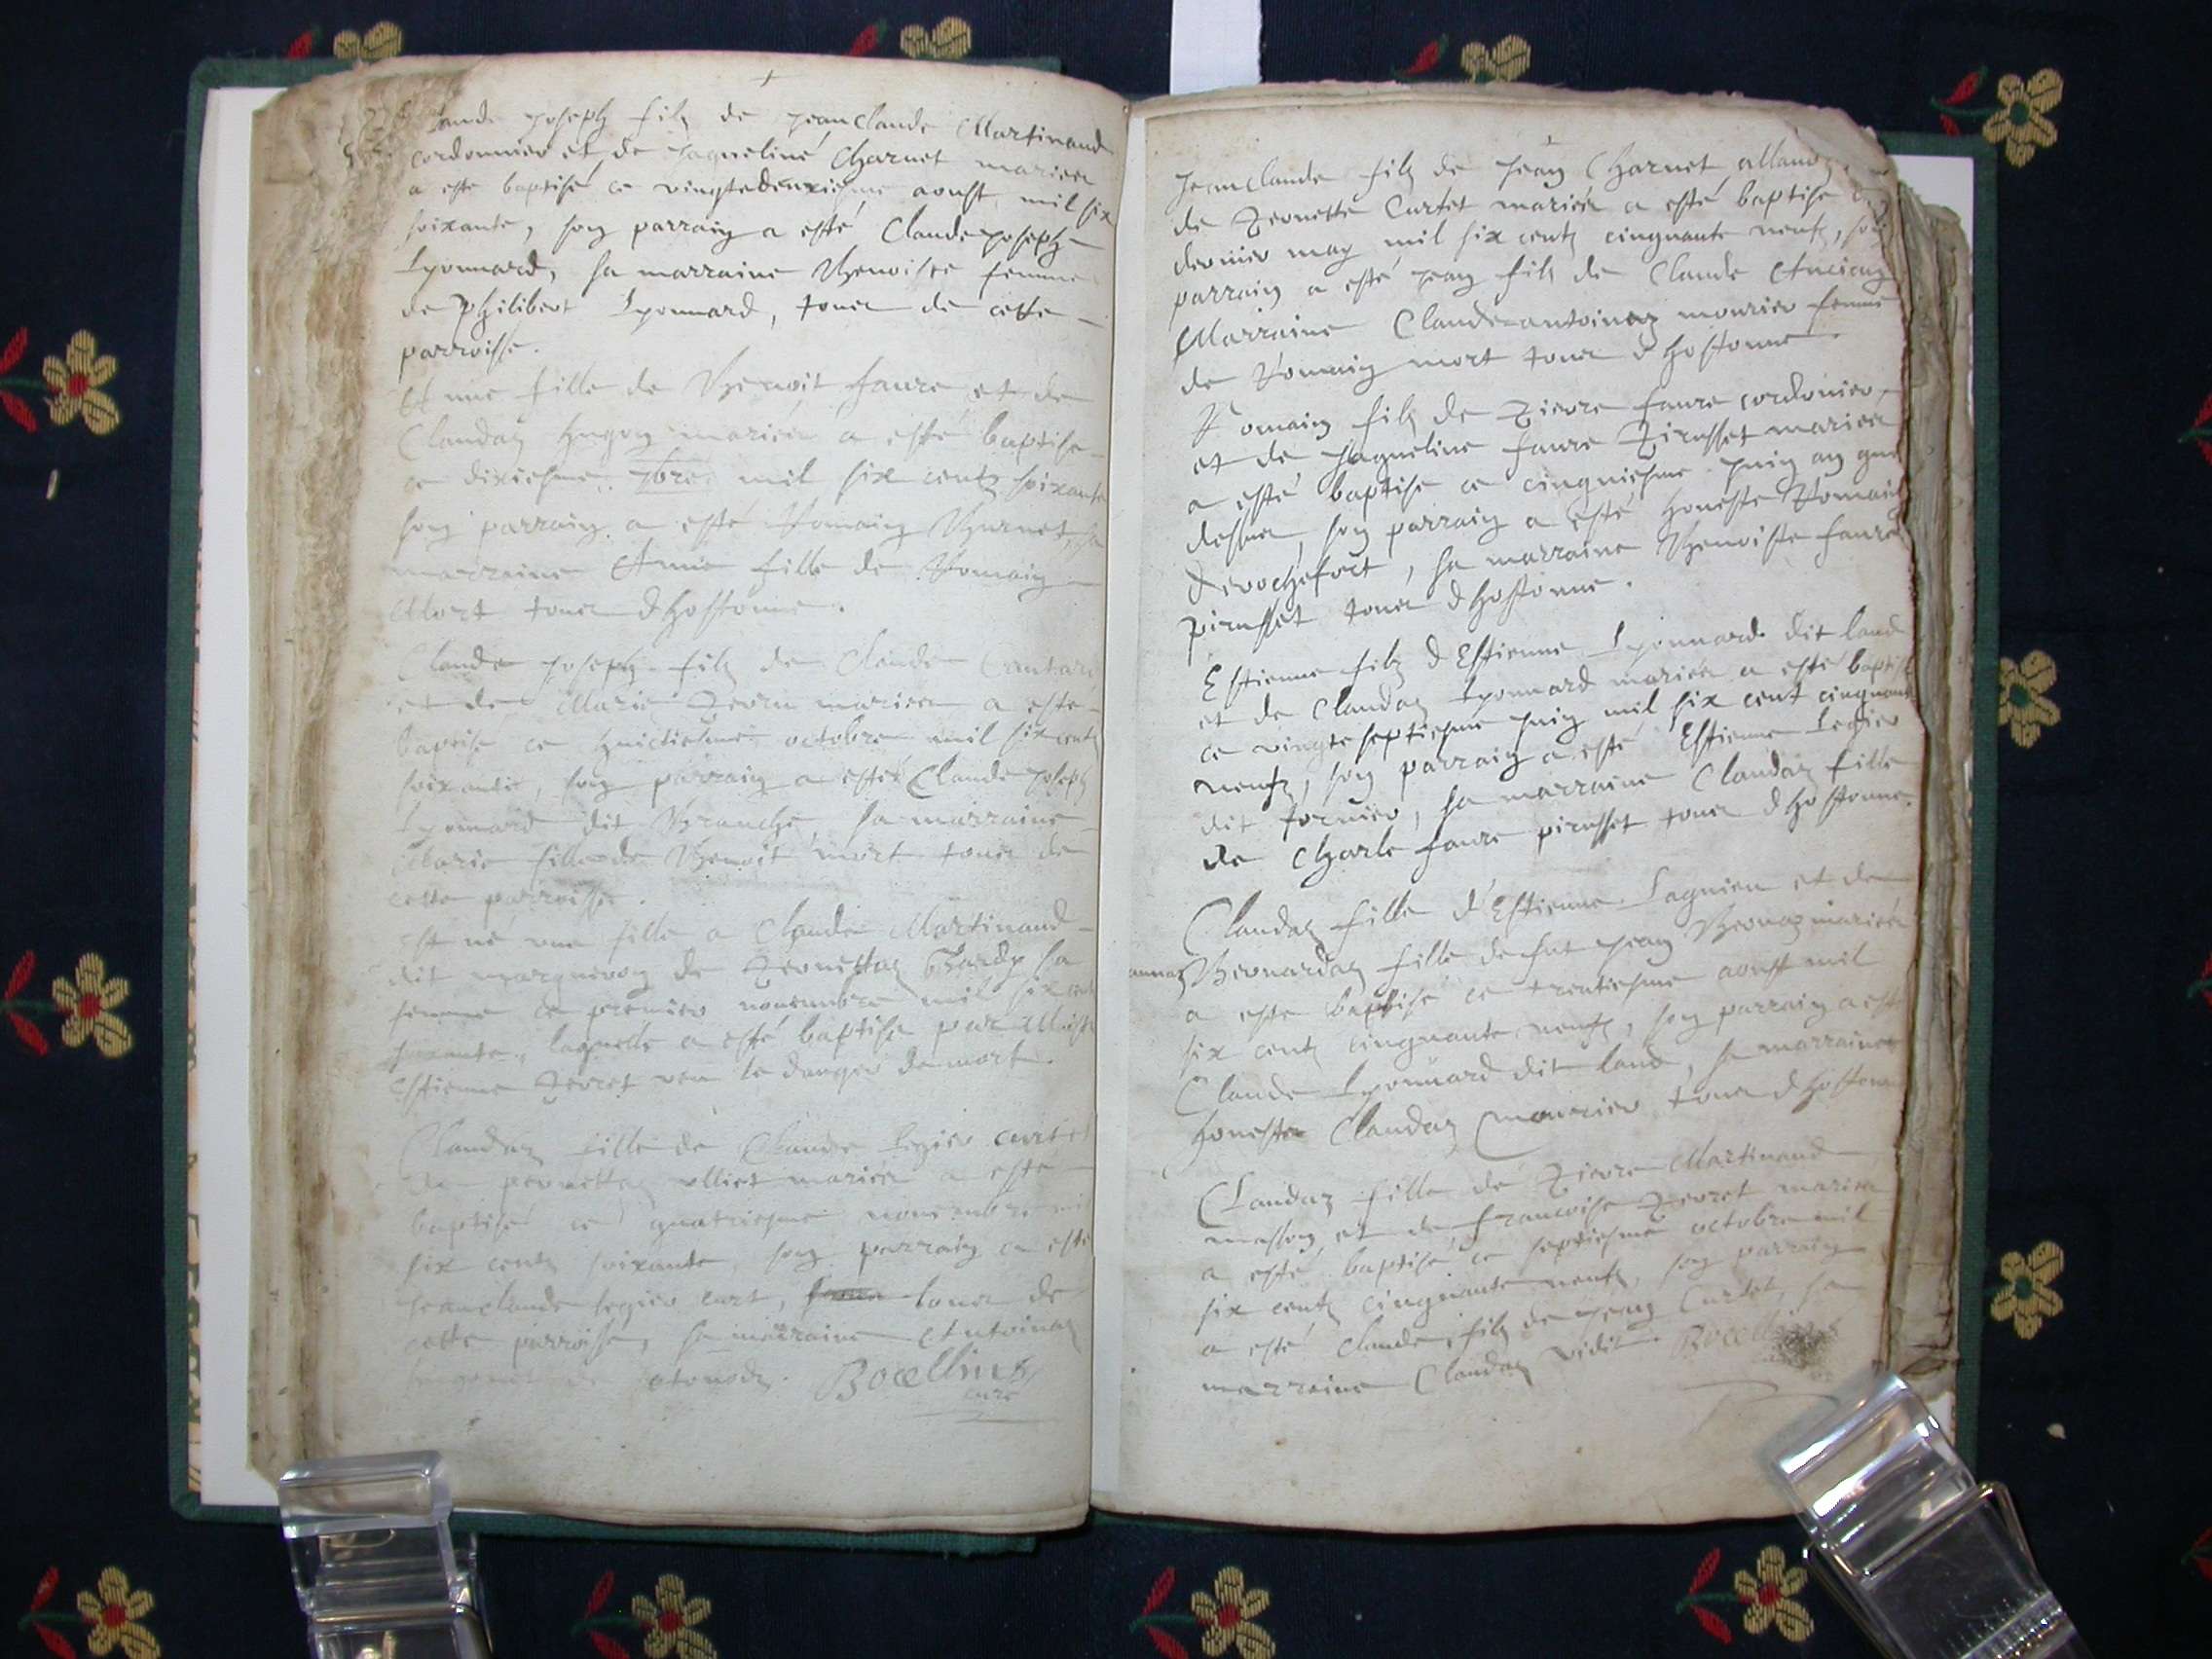 Claude Joseph filz de Jeanclaude Martinand
cordonnier et de Jaqueline Charnet mariez
a este baptisé ce vingtedeuxiesme aoust mil six
soixante, son parrain a esté Claude Joseph
Lyonnard, sa marraine Benoiste femme
de Philibert Lyonnard, tous de cette
parroisse.
Et une fille de Benoit faure et de
Claudaz hugon mariez a esté baptise
ce dixiesme 7bre mil six centz soixante
son parrain a esté Romain Burnet, sa
marraine Anne fille de Romain
Mort tous d hostonne.
Claude Joseph filz de Claude
et de Marie mariez a este
baptisé ce huictiesme octobre mil six centz
soixante, son parrain a esté Claude Joseph
Lyonnard dit Branche, sa marraine
Marie fille de Benoit mort tous de
cette parroisse.
Est né une fille a Claude Martinand
dit de Pernettaz sa
femme ce premier novembre mil six centz
soixante, laquelle a esté baptise par
Estienne Perret veu le danger de mort.
Claudaz fille de Claude legier curtet
de pernettaz ulliet mariez a este
baptisé ce quatriesme novembre mil
six centz soixante, son parrain a esté
Jeanclaude legier curt, tous de
cette parroisse, sa marraine Antoinaz
Bocellins
curé
Jeanclaude filz de Jean Charnet
de Pernette Curtet mariez a esté baptise
dernier may mil six centz cinquante neufz, son
parrain a esté Jean filz de Claude Ancian
Marraine Claude antoinaz mourier femme
de Romain mort tous d hostonne.
Romain filz de Pierre faure cordonier,
et de Jaqueline faure Pirusset mariez
a esté baptise ce cinquiesme Juin an que
dessus, son parrain a esté honeste Romain
Derochefort, sa marraine Benoiste faure
pirusset tous d hostonne.
Estienne filz d Estienne Lyonnard dit land
et de Claudaz Lyonnard mariez a esté baptisé
ce vingte septiesme Juin mil six cent cinquante
neufz, son parrain a esté Estienne Legier
dit fornier, sa marraine Claudaz fille
de Charle faure pirusset tous d hostonne.
Claudaz fille d'Estienne Lagnieu et de
Bernardaz fille de fut Jean mariez
a este baptisé ce trentiesme aoust mil
six centz cinquante neufz, son parrain a esté
Claude Lyonnard dit land, sa marraine
honeste Claudaz mourier tous d hostonne
Claudaz fille de Pierre Martinand
masson et de francoise Perret mariez
a esté baptisé ce septiesme octobre mil
six centz cinquante neufz, son parrain
a esté Claude, filz de Jean Curtet, sa
marraine Claudaz vidit Bocellins